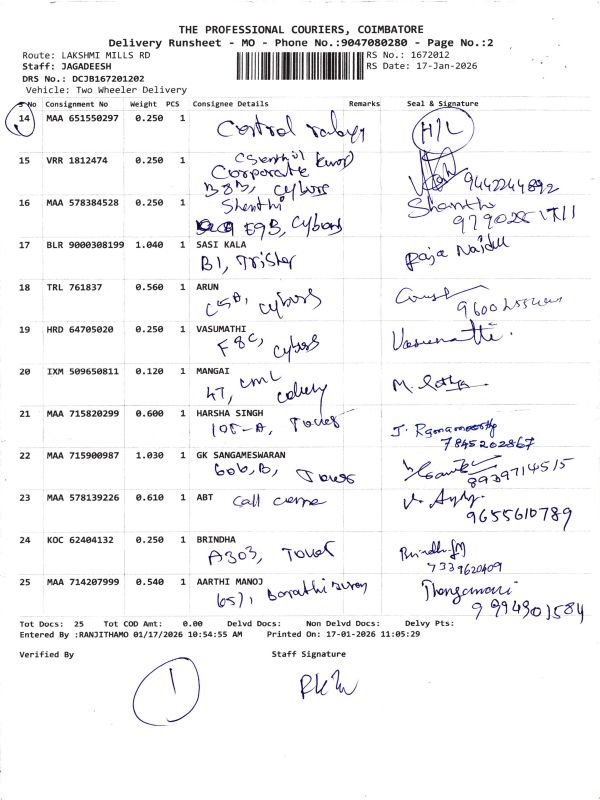 THE PROFESSIONAL COURIERS, COIMBATORE
Delivery Runsheet - MO - Phone No.:9047080280 - Page No.:2
Route: LAKSHMI MILLS RD
RS No.: 1672012
Staff: JAGADEESH
RS Date: 17-Jan-2026
DRS No.: DCJB167201202
Vehicle: Two Wheeler Delivery
S No Consignment No Weight PCS Consignee Details Remarks Seal & Signature
14 MAA 651550297 0.250 1 H/L
15 VRR 1812474 0.250 1
Corporate
B8B, Cybors 9442244892
16 MAA 578384528 0.250 1 Shenthi Shanthi
E9B, Cybors
17 BLR 9000308199 1.040 1 SASI KALA Raja Naidu
B1, Trister
18 TRL 761837 0.560 1 ARUN
C5A, Cybors
19 HRD 64705020 0.250 1 VASUMATHI Vasumathi.
F8C, Cybors
20 IXM 509650811 0.120 1 MANGAI
47, CML Colony
21 MAA 715820299 0.600 1 HARSHA SINGH J. Ramamoorthy
105-A, Tower 7845202867
22 MAA 715900987 1.030 1 GK SANGAMESWARAN
606,B, Tower 8939714515
23 MAA 578139226 0.610 1 ABT
Call 9655610789
24 KOC 62404132 0.250 1 BRINDHA Brindha M
A303, Tower 7339620409
25 MAA 714207999 0.540 1 AARTHI MANOJ Thangamani
9994901584
Tot Docs: 25 Tot COD Amt: 0.00 Delvd Docs: Non Delvd Docs: Delvy Pts:
Entered By :RANJITHAMO 01/17/2026 10:54:55 AM Printed On: 17-01-2026 11:05:29
Verified By Staff Signature
1